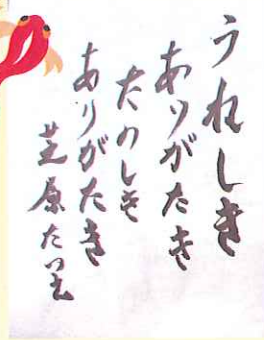 うれしき
ありがたき
たのしそ
ありがたき
芝原たえ